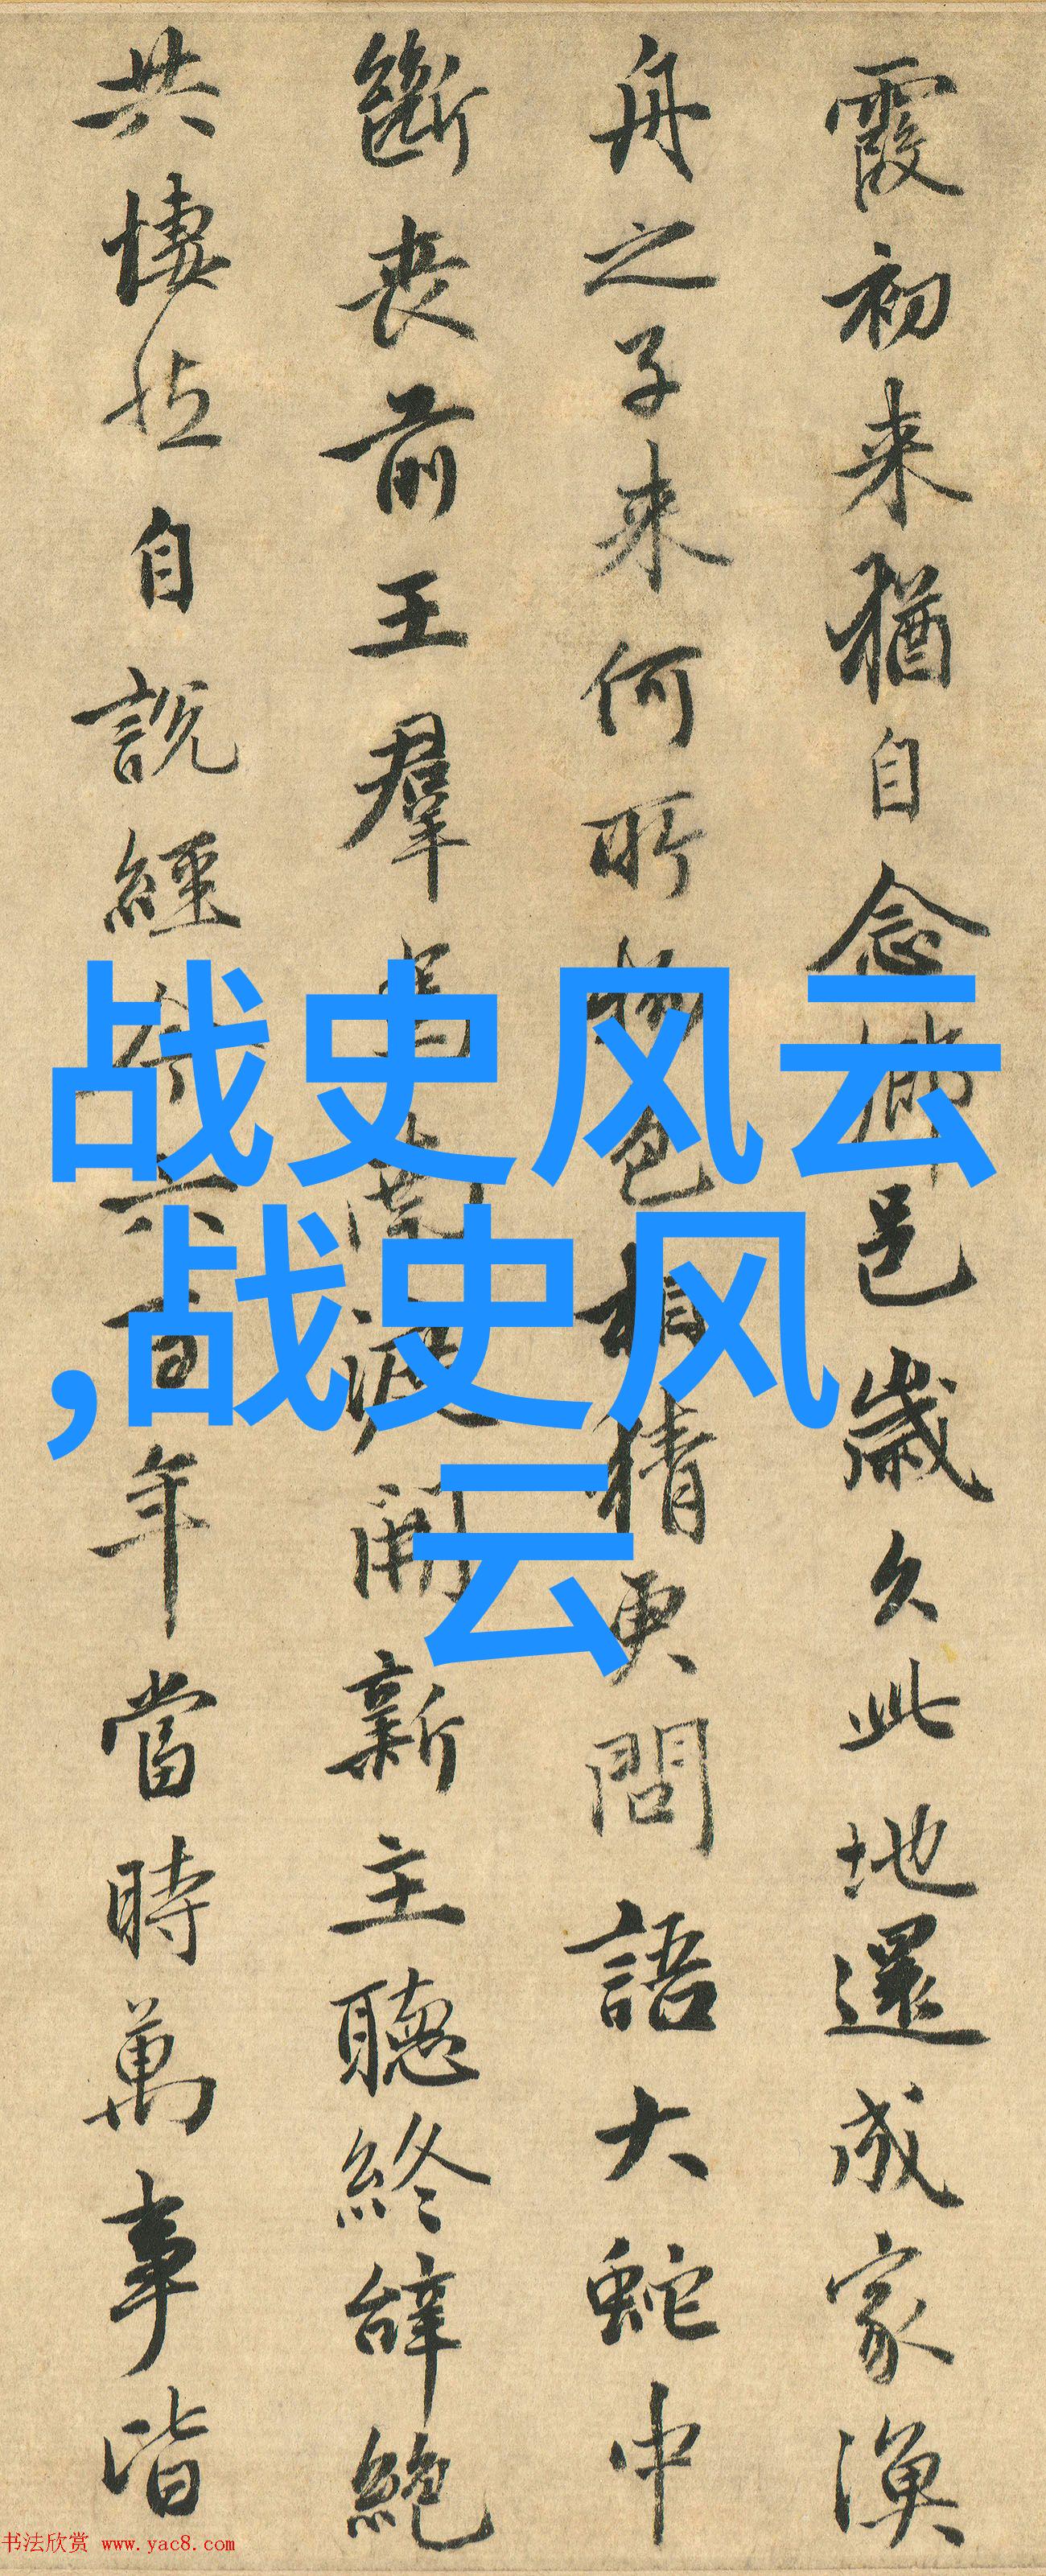 霞初来猶自念鄉邑歲久此地還成家漁
舟之子来何所物色相猜更問語大蛇中
斷丧前王羣馬渡開新主聽終辞絶
共悽然自說經今六百年當時萬事皆
战史风云
,战史风
云
书法欣赏 www.yac8.com